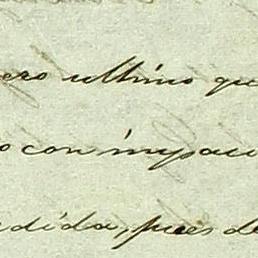 ero ultimo qu
o con impaci
dida, pues de